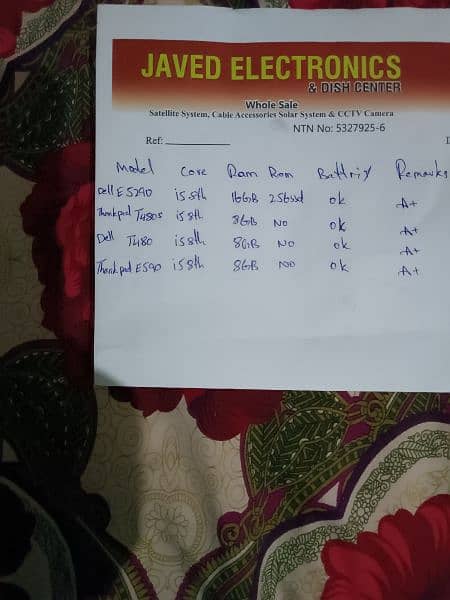 JAVED ELECTRONICS
& DISH CENTER
Whole Sale
Satellite System, Cable Accessories Solar System & CCTV Camera
NTN No: 5327925-6
Ref:
Model Core Ram Rom Battriy Remarks
Dell E5290 i5 8th 16GB 256ssd ok A+
Thinkpad T480s i5 8th 8GB No ok A+
Dell T480 i5 8th 8GB No ok A+
Thinkpad E590 i5 8th 8GB No ok A+